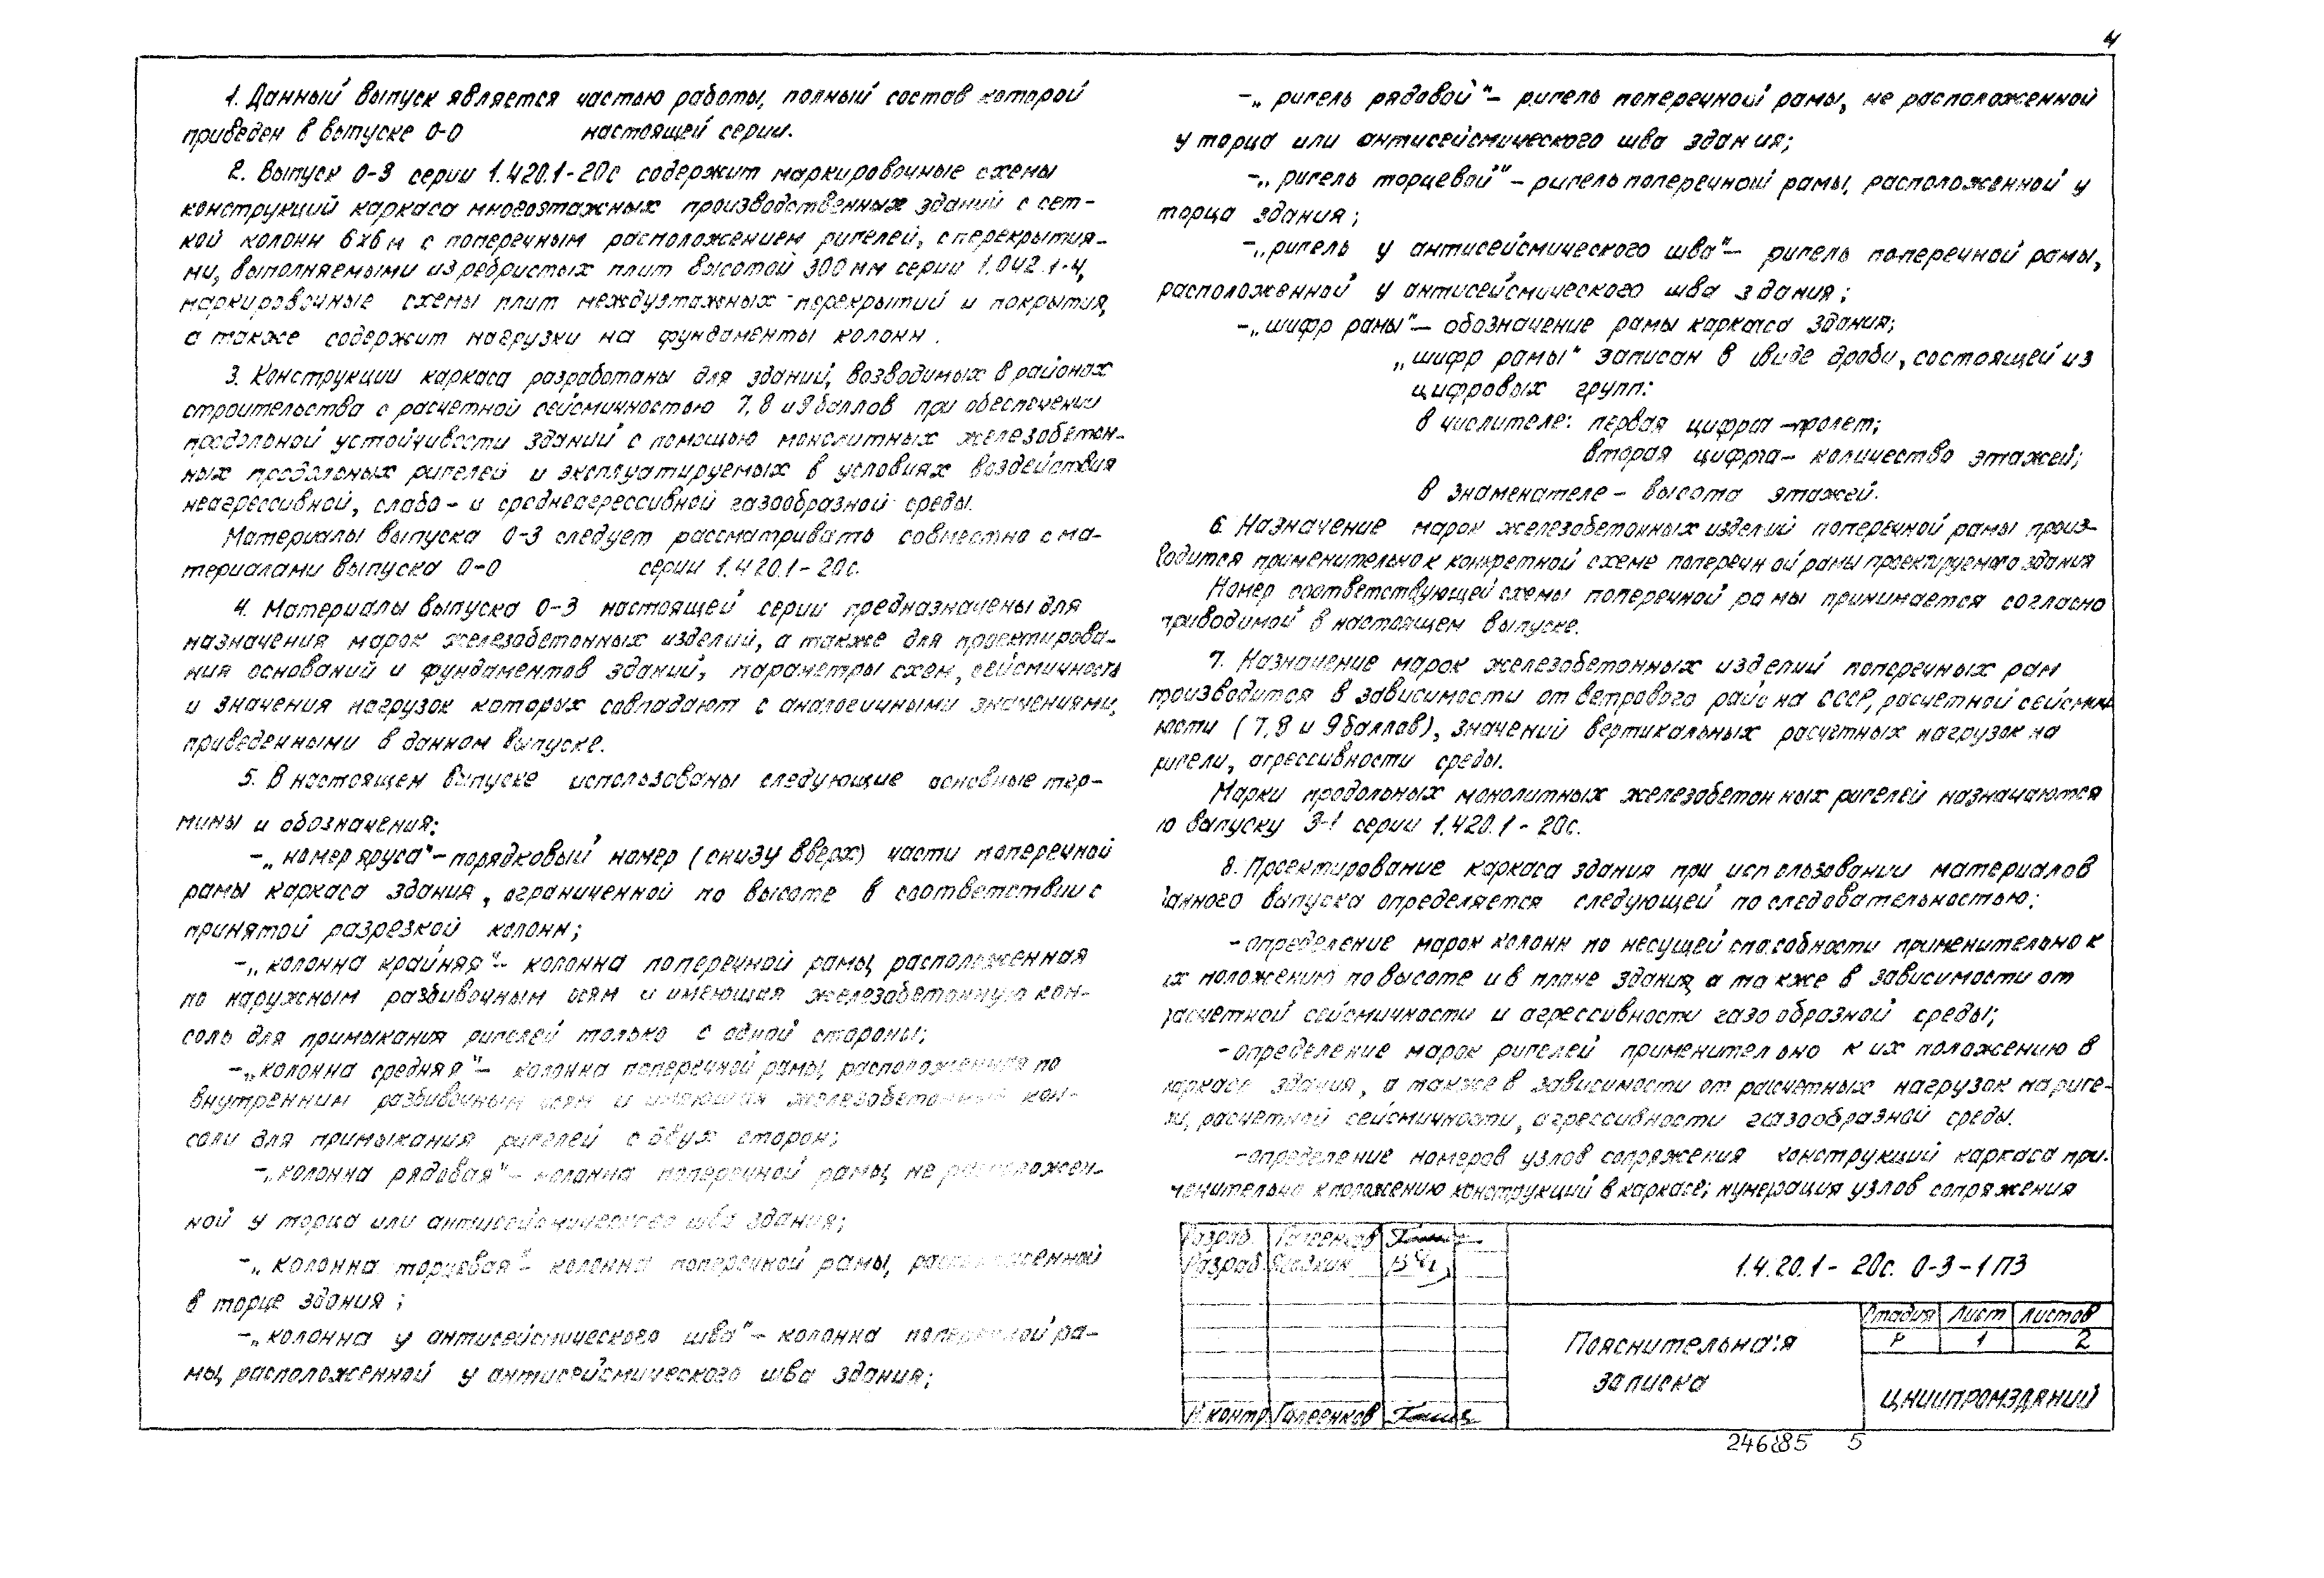 4
1. Данный выпуск является частью работы, полный состав которой
приведен в выпуске 0-0 настоящей серии.
2. Выпуск 0-3 серии 1.420.1-20с содержит маркировочные схемы
конструкций каркаса многоэтажных производственных зданий с сет-
кой колонн 6х6м с поперечным расположением ригелей, с перекрытия-
ми, выполняемыми из ребристых плит высотой 300мм серии 1.042.1-4,
маркировочные схемы плит междуэтажных перекрытий и покрытия,
а также содержит нагрузки на фундаменты колонн.
3. Конструкции каркаса разработаны для зданий, возводимых в районах
строительства с расчетной сейсмичностью 7, 8 и 9 баллов при обеспечении
продольной устойчивости зданий с помощью монолитных железобетон-
ных продольных ригелей и эксплуатируемых в условиях воздействия
неагрессивной, слабо- и среднеагрессивной газообразной среды.
Материалы выпуска 0-3 следует рассматривать совместно с ма-
териалами выпуска 0-0 серии 1.420.1-20с.
4. Материалы выпуска 0-3 настоящей серии предназначены для
назначения марок железобетонных изделий, а также для проектирова-
ния оснований и фундаментов зданий, параметры схем, сейсмичность
и значения нагрузок которых совпадают с аналогичными значениями,
приведенными в данном выпуске.
5. В настоящем выпуске использованы следующие основные тер-
мины и обозначения:
-„номер яруса"- порядковый номер (снизу вверх) части поперечной
рамы каркаса здания, ограниченной по высоте в соответствии с
принятой разрезкой колонн;
-„колонна крайняя"- колонна поперечной рамы, расположенная
по наружным разбивочным осям и имеющая железобетонную кон-
соль для примыкания ригелей только с одной стороны;
-„колонна средняя"- колонна поперечной рамы, расположенная по
внутренним разбивочным осям и имеющая железобетонные кон-
соли для примыкания ригелей с двух сторон;
-„колонна рядовая"- колонна поперечной рамы, не расположен-
ной у торца или антисейсмического шва здания;
-„колонна торцевая"- колонна поперечной рамы, расположенной
в торце здания;
-„колонна у антисейсмического шва"- колонна поперечной ра-
мы, расположенной у антисейсмического шва здания;
-„ригель рядовой"- ригель поперечной рамы, не расположенной
у торца или антисейсмического шва здания;
-„ригель торцевой"- ригель поперечной рамы, расположенной у
торца здания;
-„ригель у антисейсмического шва"- ригель поперечной рамы,
расположенной у антисейсмического шва здания;
-„шифр рамы"- обозначение рамы каркаса здания;
„шифр рамы" записан в виде дроби, состоящей из
цифровых групп:
в числителе: первая цифра - пролет;
вторая цифра - количество этажей;
в знаменателе - высота этажей.
6. Назначение марок железобетонных изделий поперечной рамы произ-
водится применительно к конкретной схеме поперечной рамы проектируемого здания
Номер соответствующей схемы поперечной рамы принимается согласно
приводимой в настоящем выпуске.
7. Назначение марок железобетонных изделий поперечных рам
производится в зависимости от ветрового района СССР, расчетной сейсмич
ности (7, 8 и 9 баллов), значений вертикальных расчетных нагрузок на
ригели, агрессивности среды.
Марки продольных монолитных железобетонных ригелей назначаются
по выпуску 3-1 серии 1.420.1-20с.
8. Проектирование каркаса здания при использовании материалов
данного выпуска определяется следующей последовательностью:
- определение марок колонн по несущей способности применительно к
их положению по высоте и в плане здания, а также в зависимости от
расчетной сейсмичности и агрессивности газообразной среды;
- определение марок ригелей применительно к их положению в
каркасе здания, а также в зависимости от расчетных нагрузок на риге-
ли, расчетной сейсмичности, агрессивности газообразной среды.
- определение номеров узлов сопряжения конструкций каркаса при-
менительно к положению конструкций в каркасе; нумерация узлов сопряжения
Разраб. Галеенков
Разраб.
Н.контр Галеенков
1.4.20.1-20с. 0-3-1ПЗ
Пояснительная
записка
Стадия Лист Листов
Р 1 2
ЦНИИПРОМЗДАНИЙ
5